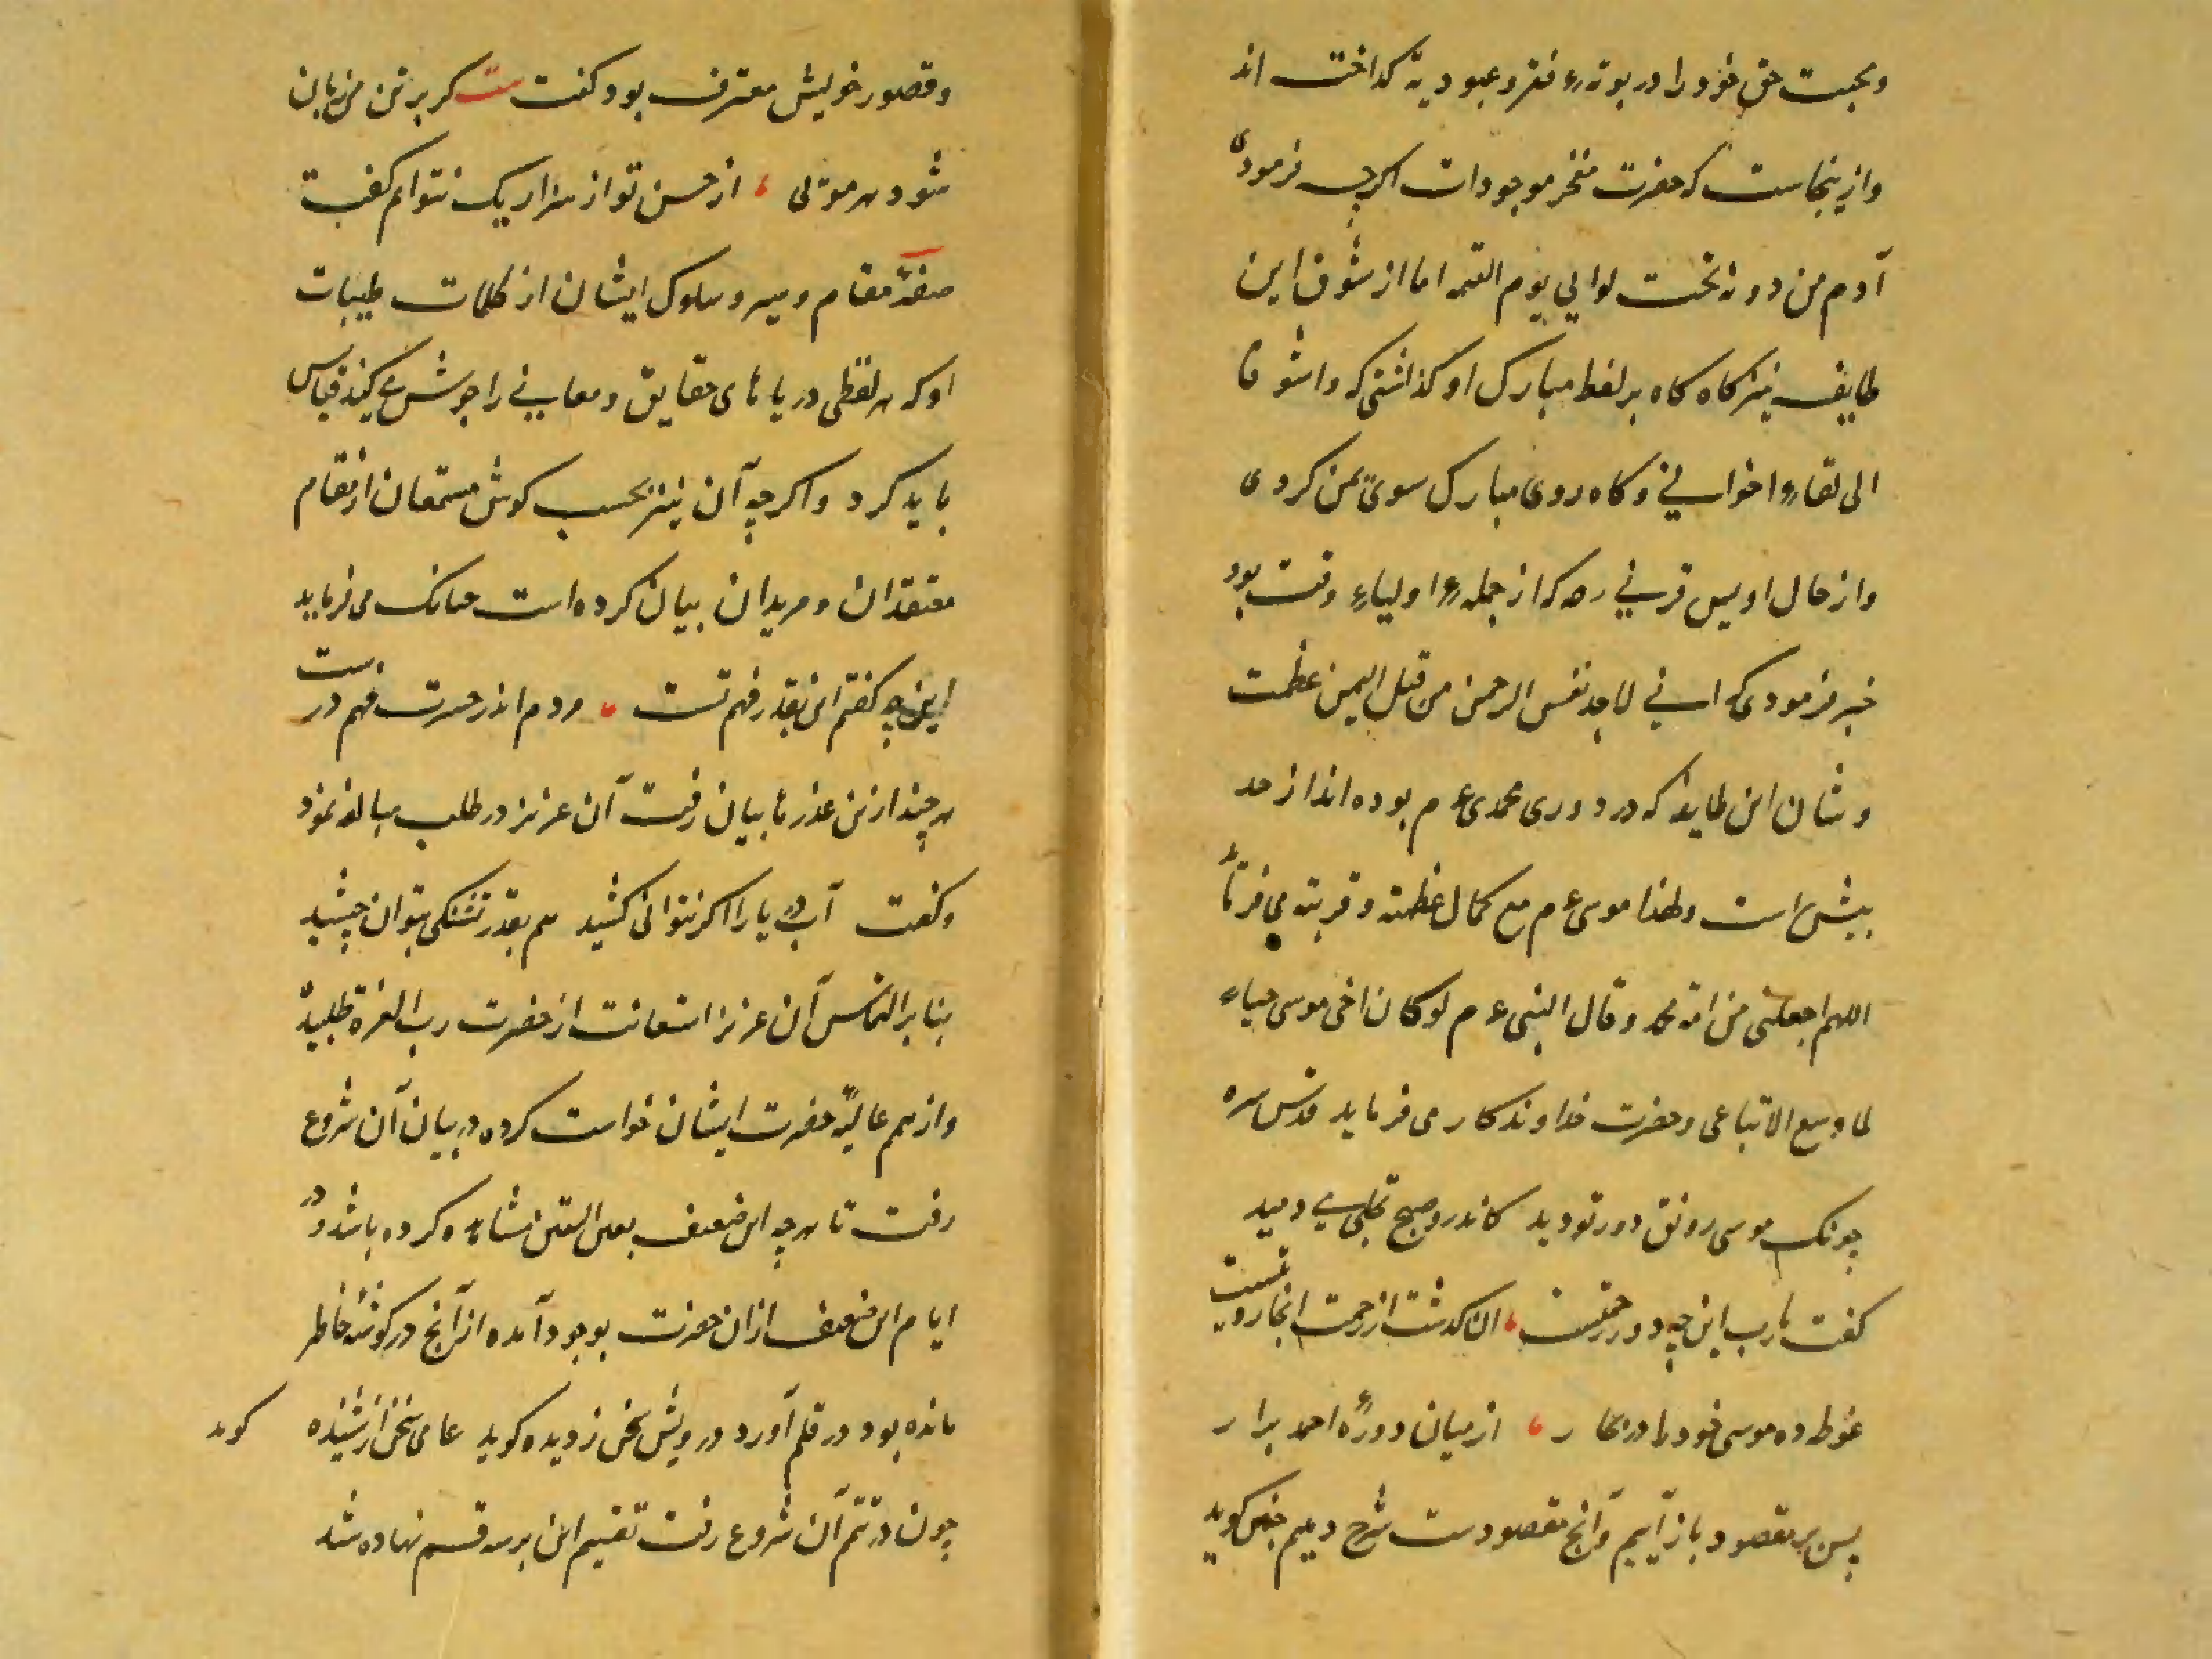 و محبت حق خود را در بوتهٔ فقر و عبودیة کداخت اند
وازینجاست که حضرت مفخر موجودات اکرچه فرمودی
آدم من دونه تحت لوایی یوم القیمه اما از شوق این
طایفه نیز کاه کاه بر لفظ مبارک او کذشتی که واشوقا
الی لقاء اخوانی و کاه روی مبارک سوی یمن کردی
واز حال اویس قرنی رضه که از جملهٔ اولیاءِ وقت بود
خبر فرمودی که انی لاجد نفس الرحمن من قبل الیمن عظمت
و شان این طایفه که در دوری محمدی ع م بوده اند از حد
بیش است ولهذا موسی ع م مع کمال عظمته و قربته می فرمٰا
اللهم اجعلنی من امة محمد وقال النبی ع م لو کان اخی موسی حیاء
لما وسع الا تباعی وحضرت خداوندکار می فرماید قدس سره
چونک موسی رونق دور تو دید کاندرو صبح تجلی می دمید
کفت یارب این چه دور رحمتست الکذشت از رحمت اینجا رویتست
غوطه ده موسی خود را در بحار از میان دورهٔ احمد برار
پس بر مقصود باز آییم وآنج مقصودست شرح دهیم چنین کوید
وقصور خویش معترف بود کفت بیت کر بر تن من زبان
شود هر مویی از حسن تو از هزار یک نتوانم کفت
صفة مقام و سیر و سلوک ایشان از کلمات طیبات
او که هر لفظی دریا های حقایق و معانی را جوشش می کند قیاس
باید کرد واکرچه آن نیز بحسب کوش مستمعان از مقام
معتقدان و مریدان بیان کرده است چنانک می فرماید
این چه کفتم این بقدر فهم تست مردم اندر حسرت فهم درست
هر چند ازین عذر ها بیان رفت آن عزیز در طلب مبالغه نمود
وکفت آب دریا را اکر نتوانی کشید هم بقدر تشنکی بتوان چشید
بنا بر التماس آن عزیز استعانت از حضرت رب العزة طلبیده
واز همم عالیة حضرت ایشان خواست کرده در بیان آن شروع
رفت تا هر چه این ضعیف بعین الیقین مشاهده کرده باشد ودر
ایام این ضعیف از ان حضرت بوجود آمده از آنج در کوشهٔ خاطر
مانده بود در قلم آورد درویش سخن ز دیده کوید عامی سخن از شنیده کوید
چون در تتم آن شروع رفت تقسیم این بر سه قسم نهاده شد